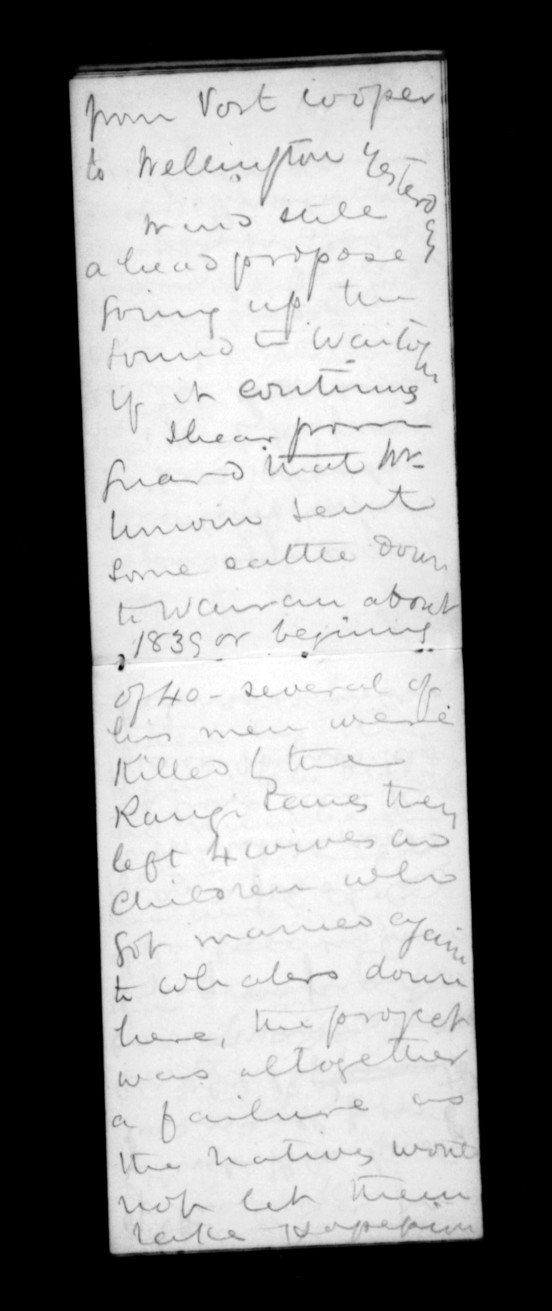 from Port Cooper
to Wellington yesterday
Wind still
ahead propose
going up the
sound to Waitohi
if it continues
I hear from
Guard that Mr
Unwin sent
some cattle down
to Wairau about
1839 or begining
of 40 - several of
his men were
Killed by the
Rangi Tanes they
left 4 wives and
children who
got married again
to whalers down
here, the project
was altogether
a failure as
the natives would
not let them
take possession